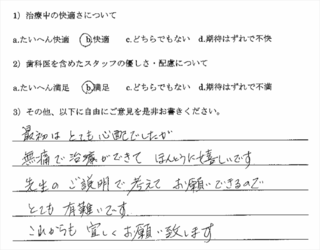 1）治療中の快適さについて
a.たいへん快適 b.快適 c.どちらでもない d.期待はずれで不快
2）歯科医を含めたスタッフの優しさ・配慮について
a.たいへん満足 b.満足 c.どちらでもない d.期待はずれで不満
3）その他、以下に自由にご意見を是非お書きください。
最初は とても心配でしたが
無痛で治療ができて ほんとうに嬉しいです
先生の ご説明で 考えて お願いできるので
とても 有難いです
これからも 宜しくお願い致します